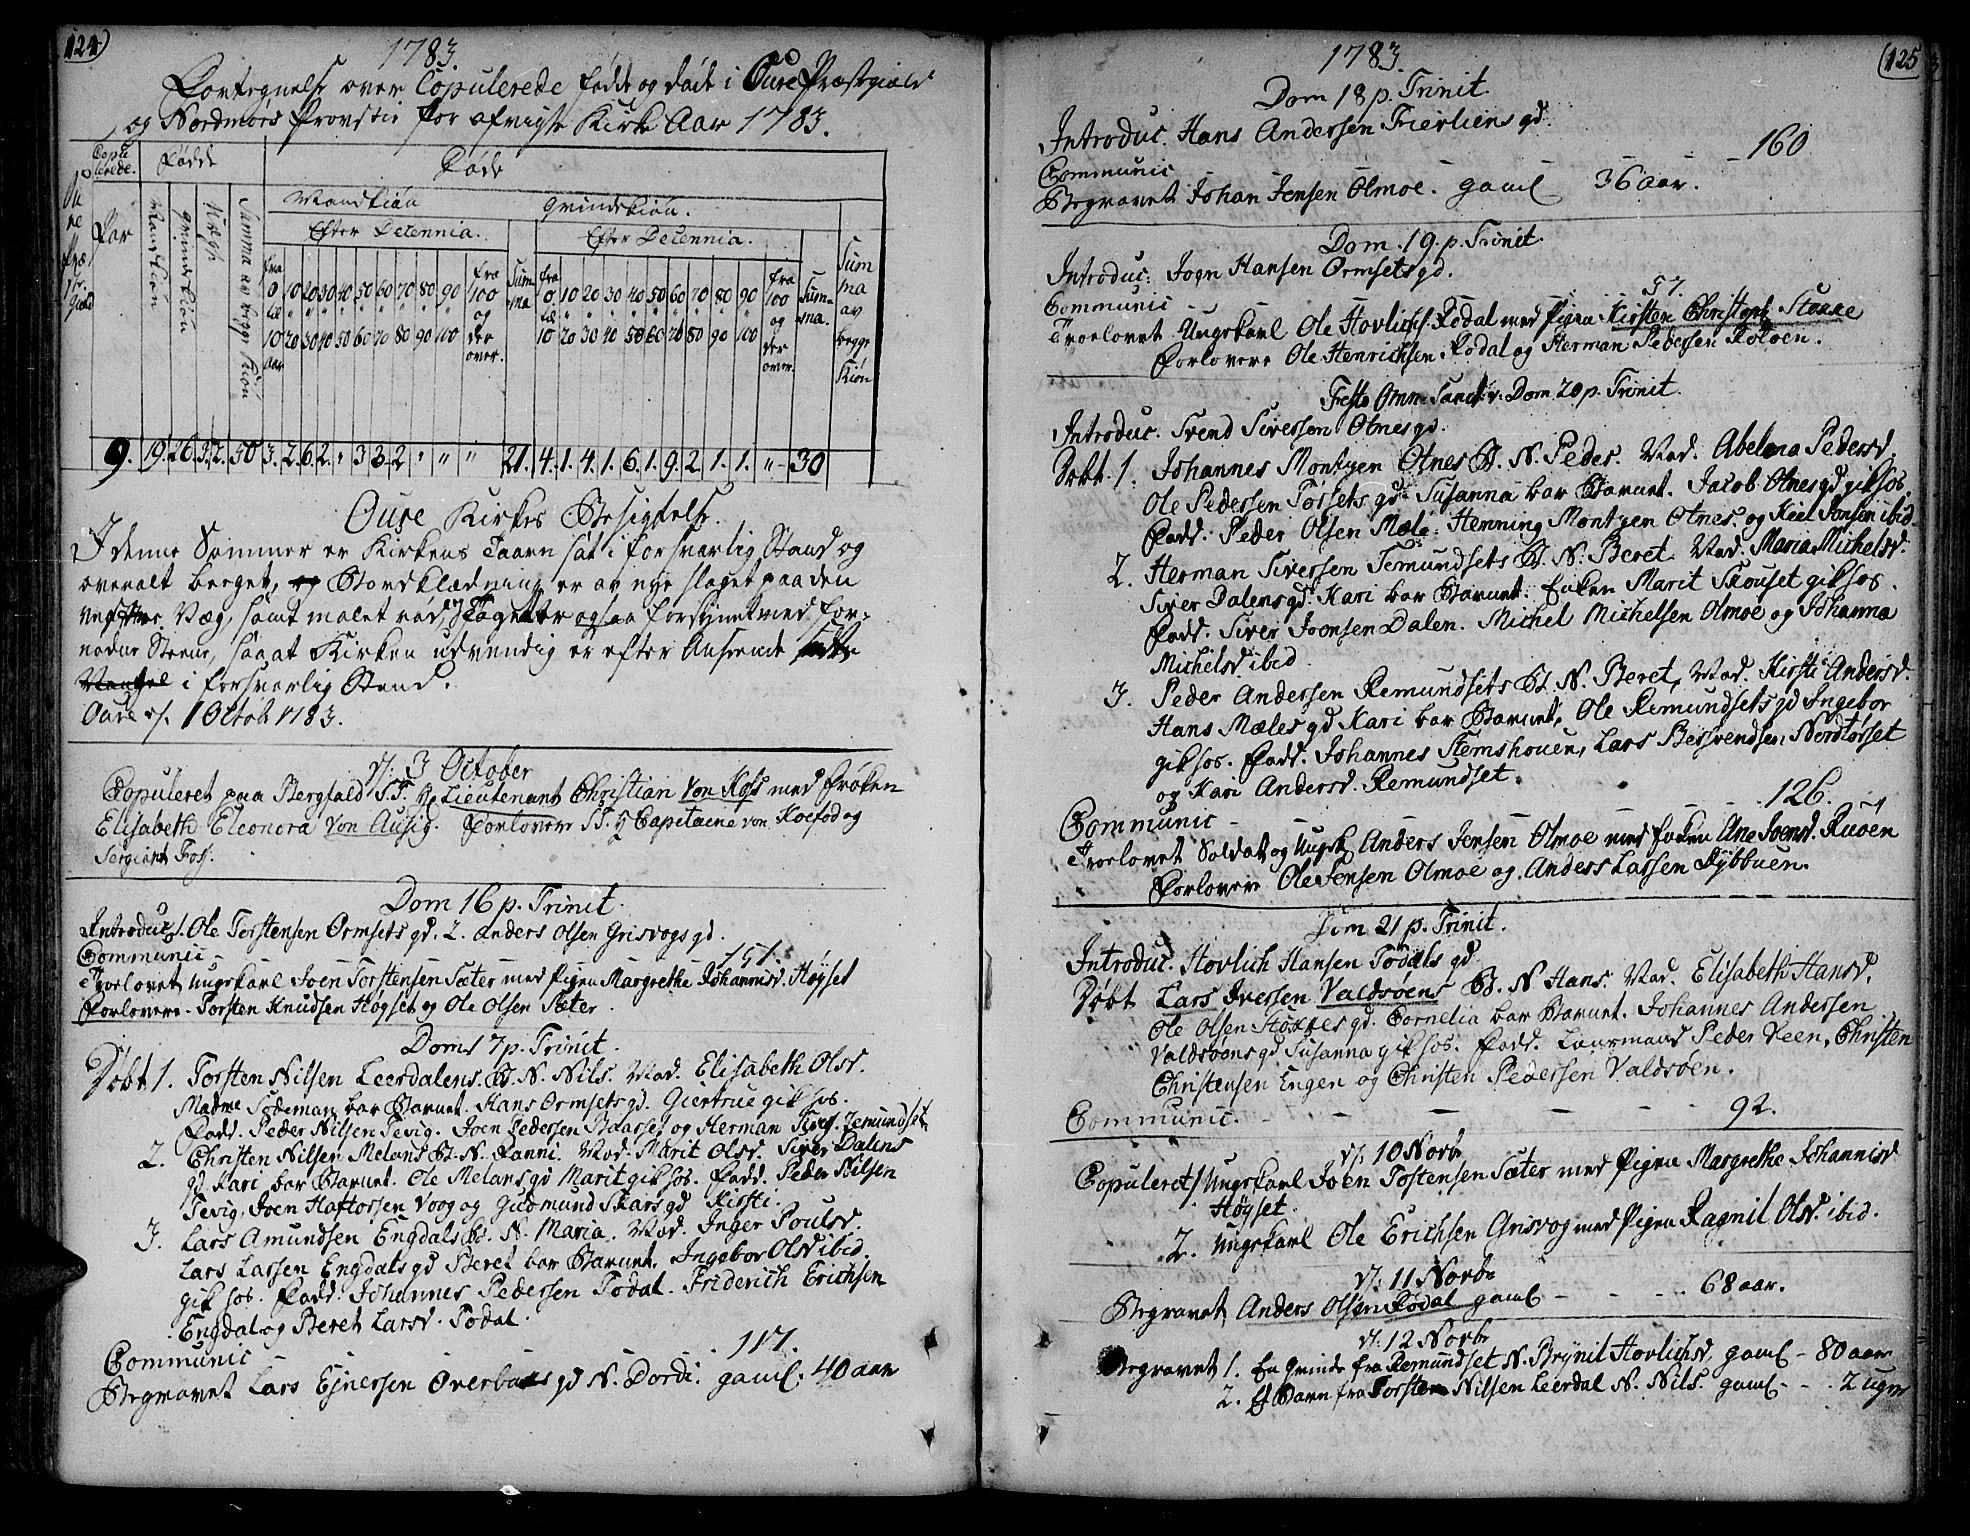 124
1783.
Fortegnelse over Copulerede fødde og døde i Oure Præstgield
og Nordmørs Provstie for afvigte Kirke Aar 1783.
Copulerede. Fødde Døde
Oure Præstegield
Par Mandkiøn Qvindekiøn Summa av begge Kiøn
Mandkiøn Qvindekiøn.
Efter Decennia. Efter Decennia.
fra 0 til 10 aar 10 " 20 20 " 30 30 " 40 40 " 50 50 " 60 60 " 70 70 " 80 80 " 90 90 " 100 fra 100 og der over. Summa
fra 0 til 10 10 " 20 20 " 30 30 " 40 40 " 50 50 " 60 60 " 70 70 " 80 80 " 90 90 " 100 fra 100 og der over. Summa. Summa av begge Kiøn
9. 19. 26 50 3. 2. 6. 2. " 3 3. 2 " " " 21. 4. 1. 4. 1. 6. 1. 9. 2. 1. 1. " 30
Oure Kirkes Besigtelse.
I denne Sommer er Kirkens Taarn sat i forsvarlig Stand og
overalt berget, og Bordklædning er av nye slaget paa den
Væg, samt malet rød, Taget er ogsaa forsynet med for-
nødne Steene, saa at Kirken udvendig er efter Anseende
i forsvarlig Stand.
Oure d. 1 Octob 1783.
d. 3 October
Copuleret paa Bergfald S.T. Hr Lieutenant Christian Von Kofs med Frøken
Elisabeth Eleonora Von Ausig. Forlovere S.T. Hr Capitaene von Koefod og
Sergiant Fos.
Dom 16 p. Trinit.
Introduc. 1. Ole Torstensen Ormsets gd. 2. Anders Olsen Grisvogs gd.
Communic - 151.
Troelovet Ungkarl Joen Torstensen Sæter med Pigen Margrethe Johannisd. Høyset
Forlovere. Torsten Knudsen Høyset og Ole Olsen Sæter.
Dom 17 p. Trinit.
Døbt 1. Torsten Nilsen Leerdalens B. N. Nils. Vad. Elisabeth Olsd.
Madme Sodeman bar Barnet. Hans Ormsets gd. Giertrue gik hos.
Fadd. Peder Nilsen Tevig. Joen Pedersen Baarset og Herman Sivers. Semundset
2. Christen Nilsen Melans B. N. Fanni. Vad. Marit Olsd. Siver Dalens
gd. Kari bar Barnet. Ole Melans gd Marit gik hos. Fadd. Peder Nilsen
Tevig, Joen Haftorsen Voog og Gudmund Skars gd Kirsti.
3. Lars Amundsen Engdals B. N. Maria. Vad. Inger Poulsd.
Lars Larsen Engdals gd Beret bar Barnet. Ingebor Olsd ibid.
gik hos. Fadd. Johannes Pedersen Todal. Friderich Erichsen
Engdal og Beret Larsd. Todal.
Communic - 117.
Begravet Lars Ejnersen Øverbøens gd N. Dordi. gaml. 40 aar
125
1783.
Dom 18 p. Trinit.
Introduc. Hans Andersen Frierliens gd.
Communic - 160
Begravet Johan Jensen Olmoe. gaml 36 aar.
Dom. 19. p. Trinit.
Introduc: Joen Hansen Ormsets gd.
Communic - 57.
Troelovet Ungkarl Ole Hovlichs. Rødal med Pigen Kirsten Christoph Stokke
Forlovere Ole Henrichsen Rødal og Herman Pedersen Rotøen.
Festo Omn. Sanct. v. Dom 20 p. Trinit.
Introduc. Svend Siversen Otnes gd.
Døbt 1. Johannes Montzen Otnes B. N. Peder. Vad. Abelona Pedersd.
Ole Pedersen Torsets gd Susanna bar Barnet. Jacob Otnes gd gik hos.
Fadd. Peder Olsen Mæle. Hemning Montzen Otnes. og Keel Jonsen ibid.
2. Herman Siversen Semundsets B. N. Beret. Vad. Maria Michelsd.
Siver Dalens gd. Kari bar Barnet. Enken Marit Skouset gik hos.
Fadd. Siver Joensen Dalen. Michel Michelsen Olmoe og Johanna
Michelsd ibid.
3. Peder Andersen Remundsets B. N. Beret, Vad. Kirsti Andersd.
Hans Mæles gd Kari bar Barnet, Ole Remundsets gd Ingebor
gik hos. Fadd. Johannes Stemshouen, Lars Bersvendsen Nordtørset
og Kari Andersd. Remundset.
Communic - 126.
Troelovet Soldat og Ungk. Anders Jensen Olmoe med Enken Ane Joensd. Ruøen
Forlovere Ole Jensen Olmoe og Anders Larsen Rybbuen.
Dom 21 p. Trinit.
Introduc. Hovlich Hansen Todals gd
Døbt Lars Iversen Valdsøens B. N Hans. Vad. Elisabeth Hansd.
Ole Olsen Støkkes gd. Cornelia bar Barnet. Johannes Andersen
Valdsøens gd Susanna gik hos. Fadd. Lansmand Peder Veen, Christen
Christensen Engen og Christen Pedersen Valdsøen.
Communic. - - - 92.
d. 10 Novb
Copuleret 1 Ungkarl Joen Tostensen Sæter med Pigen Margrethe Johannisd
Høyset.
2. Ungkarl Ole Erichsen Grisvog med Pigen Ragnil Olsd. ibid.
d. 11 Novb
Begravet Anders Olsen Rødal gaml - - - 68 aar.
d. 12 Novb
Begravet 1. En Qvinde fra Remundset N. Brynil Hovlichsd, gaml - 80 aar
2. Et Barn fra Torsten Nilsen Leerdal N. Nils. gaml - - 2 uger